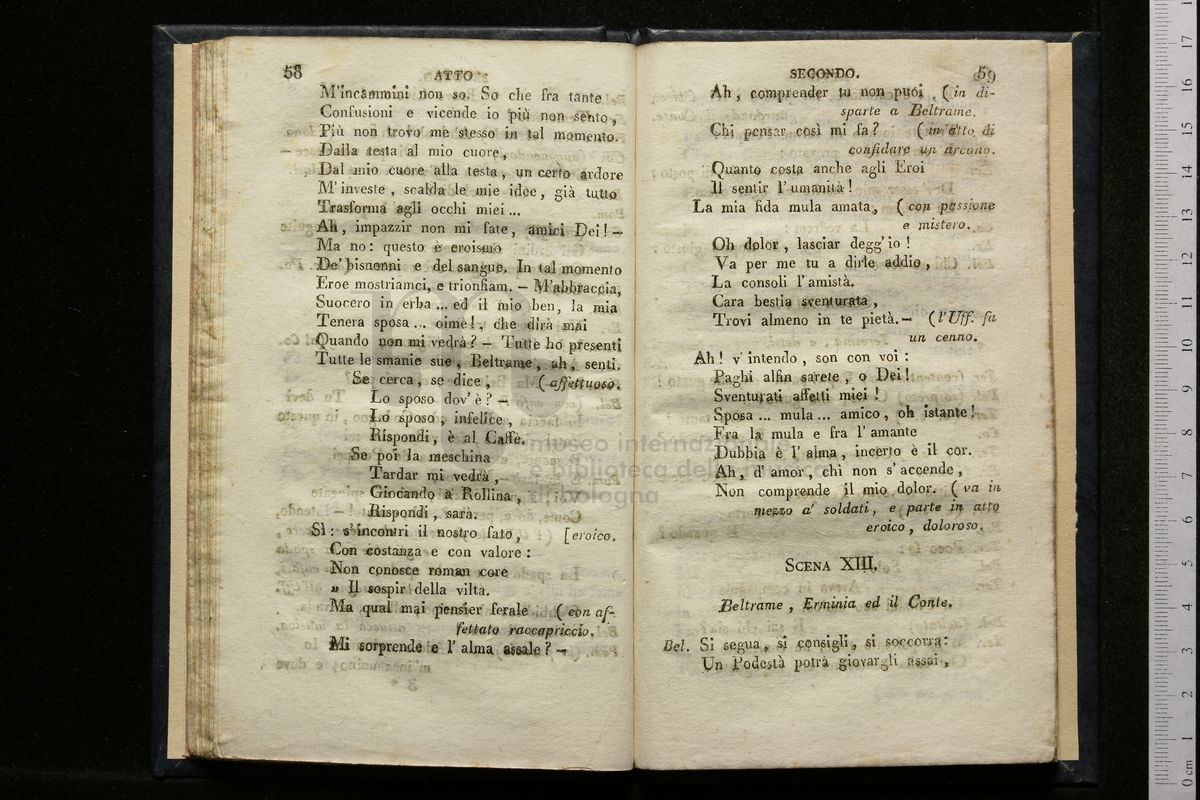 58
ATTO
M'incammini non so. So che fra tante
Confusioni e vicende io più non sento,
Più non trovo me stesso in tal momento.
— Dalla testa al mio cuore,
Dal mio cuore alla testa, un certo ardore
M'investe, scalda le mie idee, già tutto
Trasforma agli occhi miei...
Ah, impazzir non mi fate, amici Dei! —
Ma no: questo è eroismo
De' bisnonni e del sangue. In tal momento
Eroe mostriamci, e trionfiam. — M'abbraccia,
Suocero in erba... ed il mio ben, la mia
Tenera sposa... oimè!, che dirà mai
Quando non mi vedrà? — Tutte ho presenti
Tutte le smanie sue, Beltrame, ah, senti.
Se cerca, se dice, (affettuoso.
Lo sposo dov'è? —
Lo sposo, infelice,
Rispondi, è al Caffè.
Se poi la meschina
Tardar mi vedrà,
Giocando a Rollina,
— Rispondi, sarà.
Sì: s'incontri il nostro fato, [eroico.
Con costanza e con valore:
Non conosce roman core
» Il sospir della viltà.
Ma qual mai pensier ferale (con af-
fettato raccapriccio.
Mi sorprende e l'alma assale? —
SECONDO.
59
Ah, comprender tu non puoi (in di-
sparte a Beltrame.
Chi pensar così mi fa? (in atto di
confidare un arcano.
Quanto costa anche agli Eroi
Il sentir l'umanità!
La mia fida mula amata, (con passione
e mistero.
Oh dolor, lasciar degg'io!
Va per me tu a dirle addio,
La consoli l'amistà.
Cara bestia sventurata,
Trovi almeno in te pietà. — (l'Uff. fa
un cenno.
Ah! v'intendo, son con voi:
Paghi alfin sarete, o Dei!
Sventurati affetti miei!
Sposa... mula... amico, oh istante!
Fra la mula e fra l'amante
Dubbia è l'alma, incerto è il cor.
Ah, d'amor, chi non s'accende,
Non comprende il mio dolor. (va in
mezzo a' soldati, e parte in atto
eroico, doloroso.
SCENA XIII.
Beltrame, Erminia ed il Conte.
Bel. Si segua, si consigli, si soccorra:
Un Podestà potrà giovargli assai,
museo internazionale
e biblioteca della musica
di bologna
0 cm 1 2 3 4 5 6 7 8 9 10 11 12 13 14 15 16 17